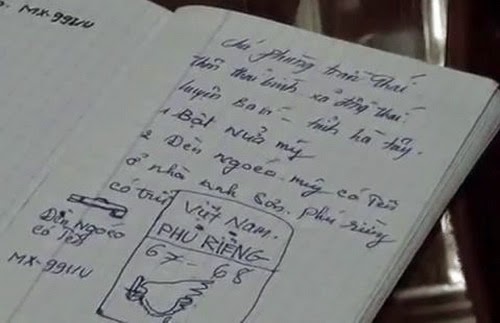 MX-991/U
chú phùng trần thái
thôn thái bình xã đông thái
huyện Ba Vì - tỉnh hà tây.
1 Bật lửa mỹ
2 Đèn ngoéo mỹ có tên
ở nhà anh Sơn. phú riềng
có
Việt Nam.
PHÚ RIỀNG
67 - 68
Đèn Ngoéo
có tên
MX-991/U